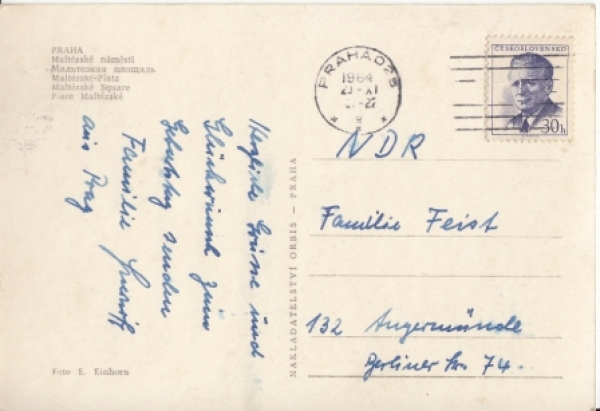 PRAHA
Maltézské náměstí
Мальтезкая площадь
Maltézské-Platz
Maltézské Square
Place Maltézské
PRAHA 025
1964
XI
ČESKOSLOVENSKO
30h
NDR
Familie Feist
132 Angermünde
Berliner Str. 74.
Herzliche Grüsse und
Glückwunsch zum
Geburtstag senden
Familie
aus Prag
NAKLADATELSTVÍ ORBIS — PRAHA
Foto E. Einhorn